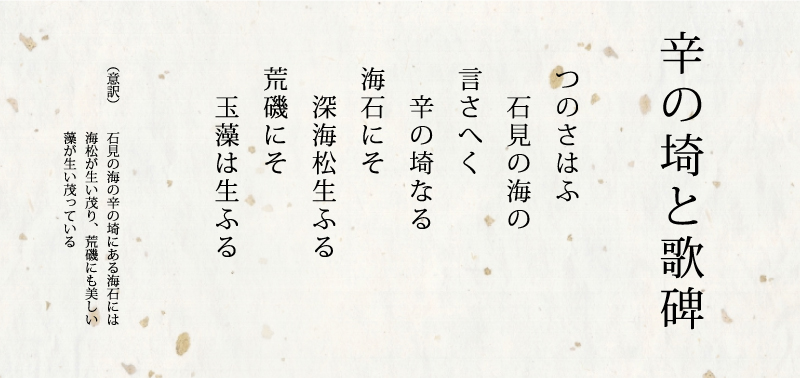 辛の埼と歌碑
つのさはふ
石見の海の
言さへく
辛の埼なる
海石にそ
深海松生ふる
荒磯にそ
玉藻は生ふる
（意訳）
石見の海の辛の埼にある海石には
海松が生い茂り、荒磯にも美しい
藻が生い茂っている